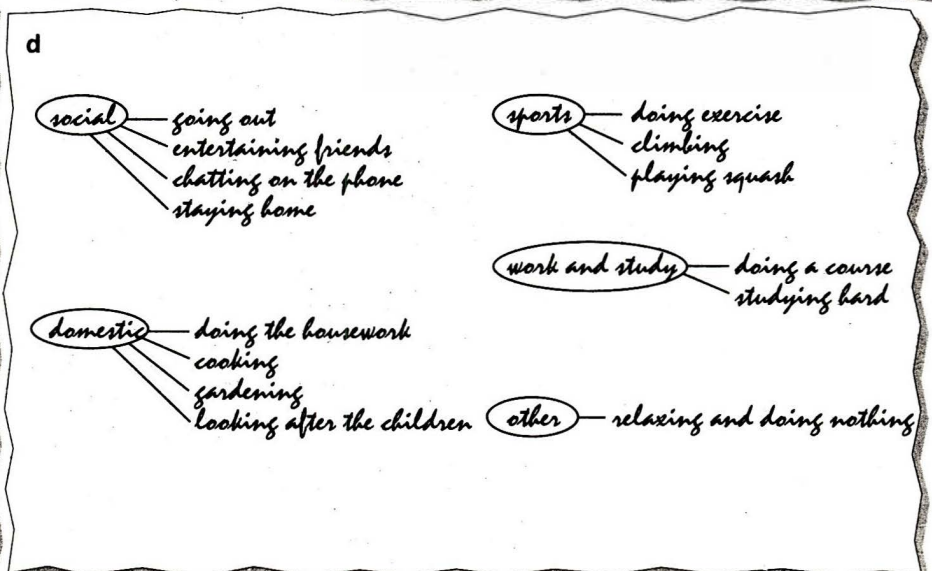 d
social
going out
entertaining friends
chatting on the phone
staying home
domestic
doing the housework
cooking
gardening
looking after the children
sports
doing exercise
climbing
playing squash
work and study
doing a course
studying hard
other
relaxing and doing nothing